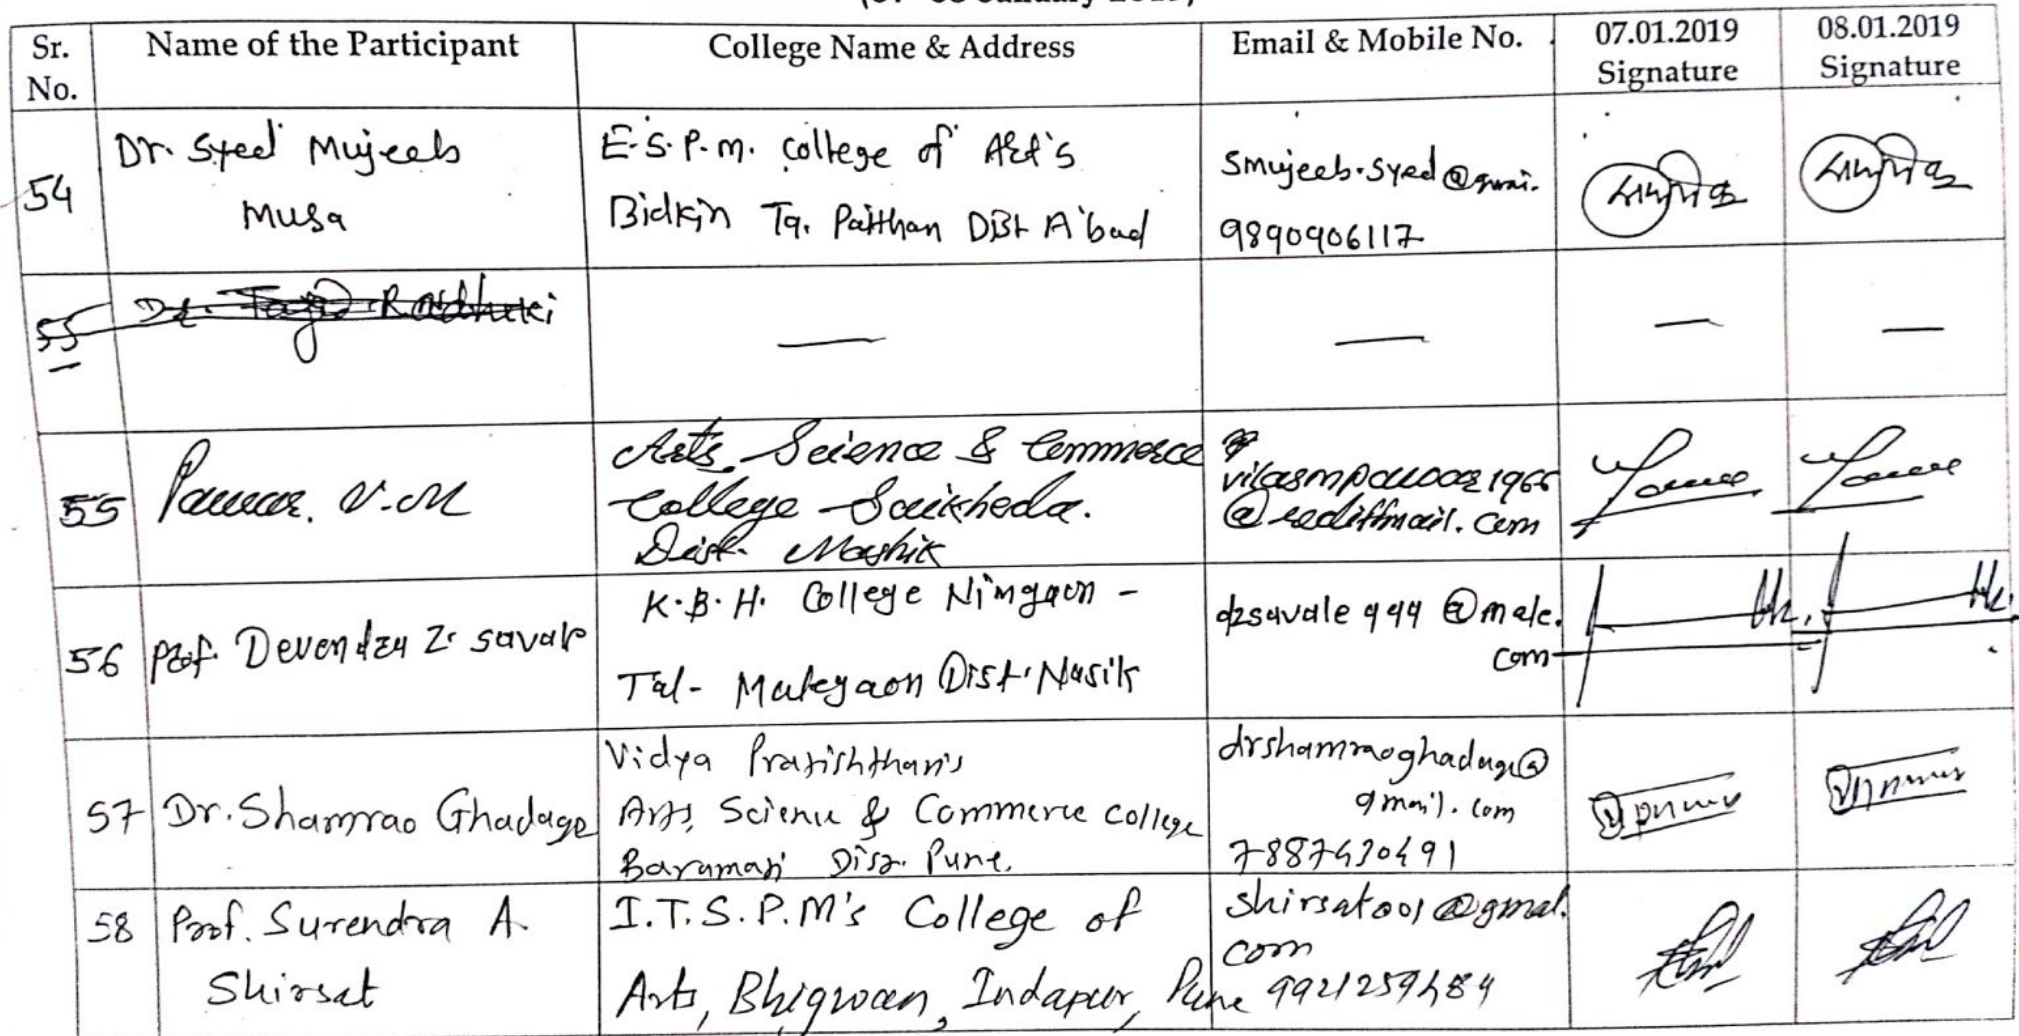 Sr. No.
Name of the Participant
College Name & Address
Email & Mobile No.
07.01.2019 Signature
08.01.2019 Signature
54
Dr. Syed Mujeeb
Musa
E.S.P.M. College of Art's
Bidkin Tq. Paithan Dist A'bad
smujeeb.syed@gmai.
9890906117
55
Dr.
—
—
—
—
55
Pawar. V.M
Arts, Science & Commerce
College Saikheda.
Dist. Nashik
vilasmpawar1966
@rediffmail.com
56
Prof. Devendra Z. Savale
K.B.H. College Nimgaon -
Tal- Malegaon Dist. Nasik
dzsavale999@male.
com
57
Dr. Shamrao Ghadage
Vidya Pratishthan's
Arts, Science & Commerce College
Baramati Dist. Pune.
drshamraoghadage@
gmail.com
7887430491
58
Prof. Surendra A.
Shirsat
I.T.S.P.M's College of
Arts, Bhigwan, Indapur, Pune
shirsat001@gmal.
com
9921259484